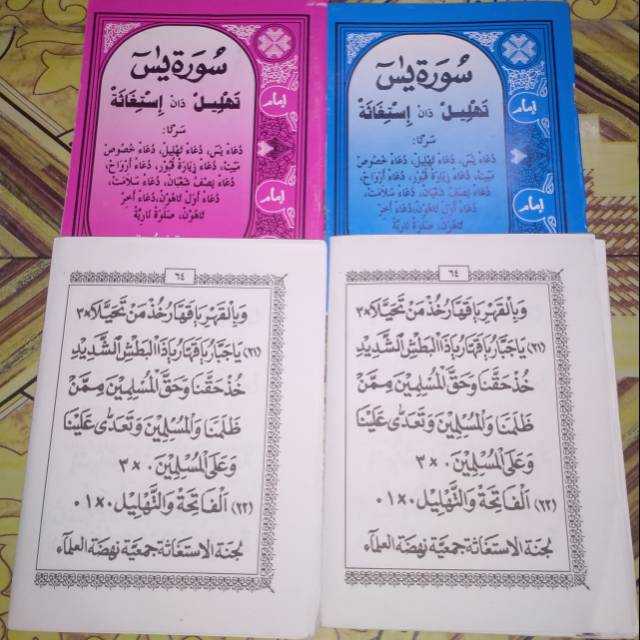 سُورَة يٰسٓ
تَهْلِيْل دَان إِسْتِغَاثَة
سرتا:
دُعَاء يٰس، دُعَاء تَهْلِيْل، دُعَاء خُصُوص
مَيِّت، دُعَاء زِيَارَة قُبُوْر، دُعَاء أَرْوَاح،
دُعَاء نِصْف شَعْبَان، دُعَاء سَلَامَت،
دُعَاء أَوَّل تَاهُوْن، دُعَاء أَخِر
تَاهُوْن، صَلَوة نَارِيَّة
إمام
إمام
سُورَة يٰسٓ
تَهْلِيْل دَان إِسْتِغَاثَة
سرتا:
دُعَاء يٰس، دُعَاء تَهْلِيْل، دُعَاء خُصُوص
مَيِّت، دُعَاء زِيَارَة قُبُوْر، دُعَاء أَرْوَاح،
دُعَاء نِصْف شَعْبَان، دُعَاء سَلَامَت،
دُعَاء أَوَّل تَاهُوْن، دُعَاء أَخِر
تَاهُوْن، صَلَوة نَارِيَّة
إمام
إمام
٦٤
وَبِالْقَهْرِ يَا قَهَّارُ خُذْ مَنْ تَحَيَّلَا ×٣
(٢١) يَا جَبَّارُ يَا قَهَّارُ يَا ذَا الْبَطْشِ الشَّدِيْدِ
خُذْ حَقَّنَا وَحَقَّ الْمُسْلِمِيْنَ مِمَّنْ
ظَلَمَنَا وَالْمُسْلِمِيْنَ وَتَعَدَّى عَلَيْنَا
وَعَلَى الْمُسْلِمِيْنَ . ×٣
(٢٢) اَلْفَاتِحَةُ وَالتَّهْلِيْلُ . ×١٠
لجنة الاستغاثة جمعية نهضة العلماء
٦٤
وَبِالْقَهْرِ يَا قَهَّارُ خُذْ مَنْ تَحَيَّلَا ×٣
(٢١) يَا جَبَّارُ يَا قَهَّارُ يَا ذَا الْبَطْشِ الشَّدِيْدِ
خُذْ حَقَّنَا وَحَقَّ الْمُسْلِمِيْنَ مِمَّنْ
ظَلَمَنَا وَالْمُسْلِمِيْنَ وَتَعَدَّى عَلَيْنَا
وَعَلَى الْمُسْلِمِيْنَ . ×٣
(٢٢) اَلْفَاتِحَةُ وَالتَّهْلِيْلُ . ×١٠
لجنة الاستغاثة جمعية نهضة العلماء